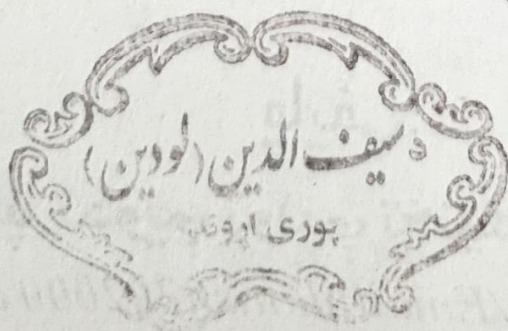 د سيف الدين (لودين)
پوری اړوند